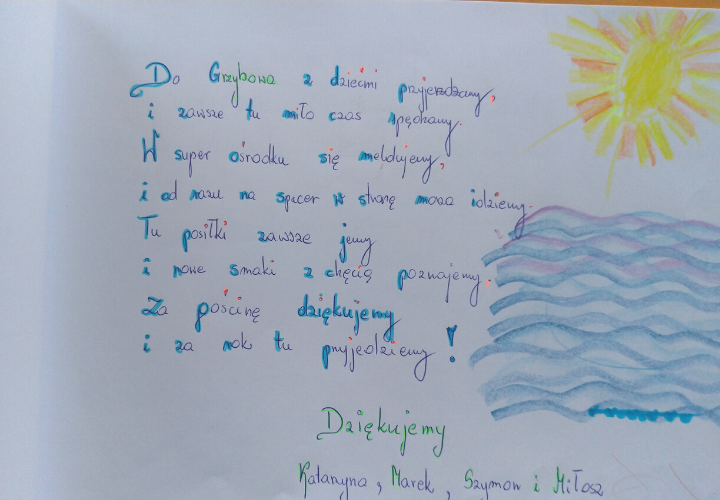 Do Grzybowa z dziećmi przyjeżdżamy,
i zawsze tu miło czas spędzamy.
W super ośrodku się meldujemy,
i od razu na spacer w stronę morza idziemy.
Tu posiłki zawsze jemy
i nowe smaki z chęcią poznajemy.
Za gościnę dziękujemy
i za rok tu przyjedziemy!
Dziękujemy
Katarzyna, Marek, Szymon i Miłosz